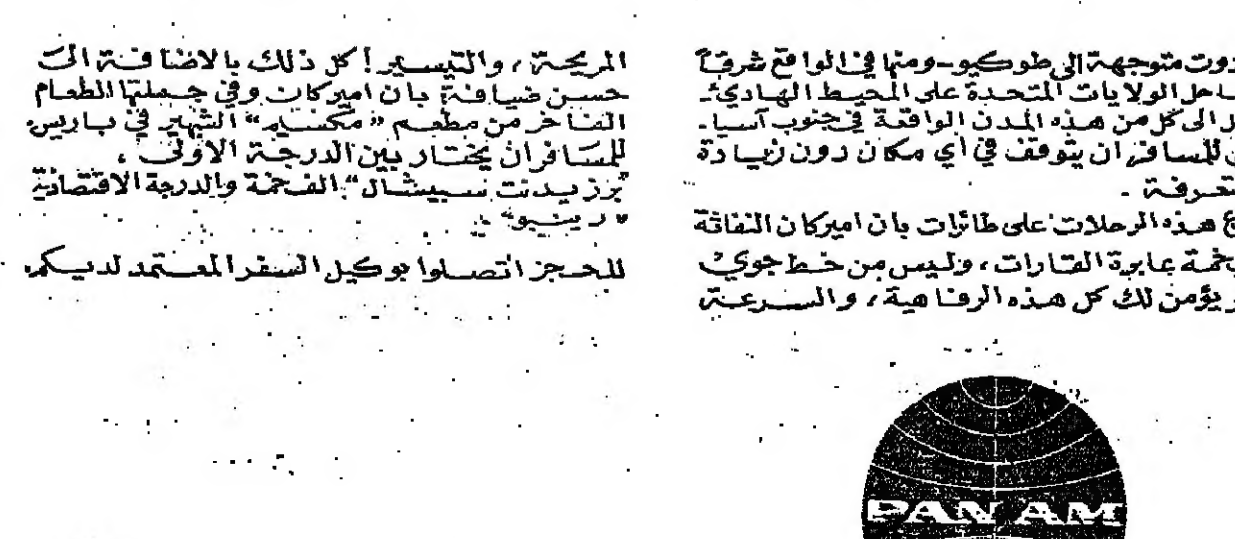 بيروت متوجهة الى طوكيو - ومنها في الواقع شرقاً
ساحل الولايات المتحدة على المحيط الهادئ -
الى كل من هذه المدن الواقعة في جنوب آسيا -
للمسافر ان يتوقف في أي مكان دون زيادة
التعرفة -
هذه الرحلات على طائرات بان اميركان النفاثة
الضخمة عابرة القارات، وليس من خط جوي
يؤمن لك كل هذه الرفاهية، والسرعة
المريحة، والتيسير! كل ذلك بالاضافة الى
حسن ضيافة بان اميركان وفي جملتها الطعام
الفاخر من مطعم "مكسيم" الشهير في باريس.
للمسافر ان يختار بين الدرجة الاولى،
"برزيدنت سبيشال" الفخمة والدرجة الاقتصادية
"رينبو".
للحجز اتصلوا بوكيل السفر المعتمد لديكم.
PAN AM